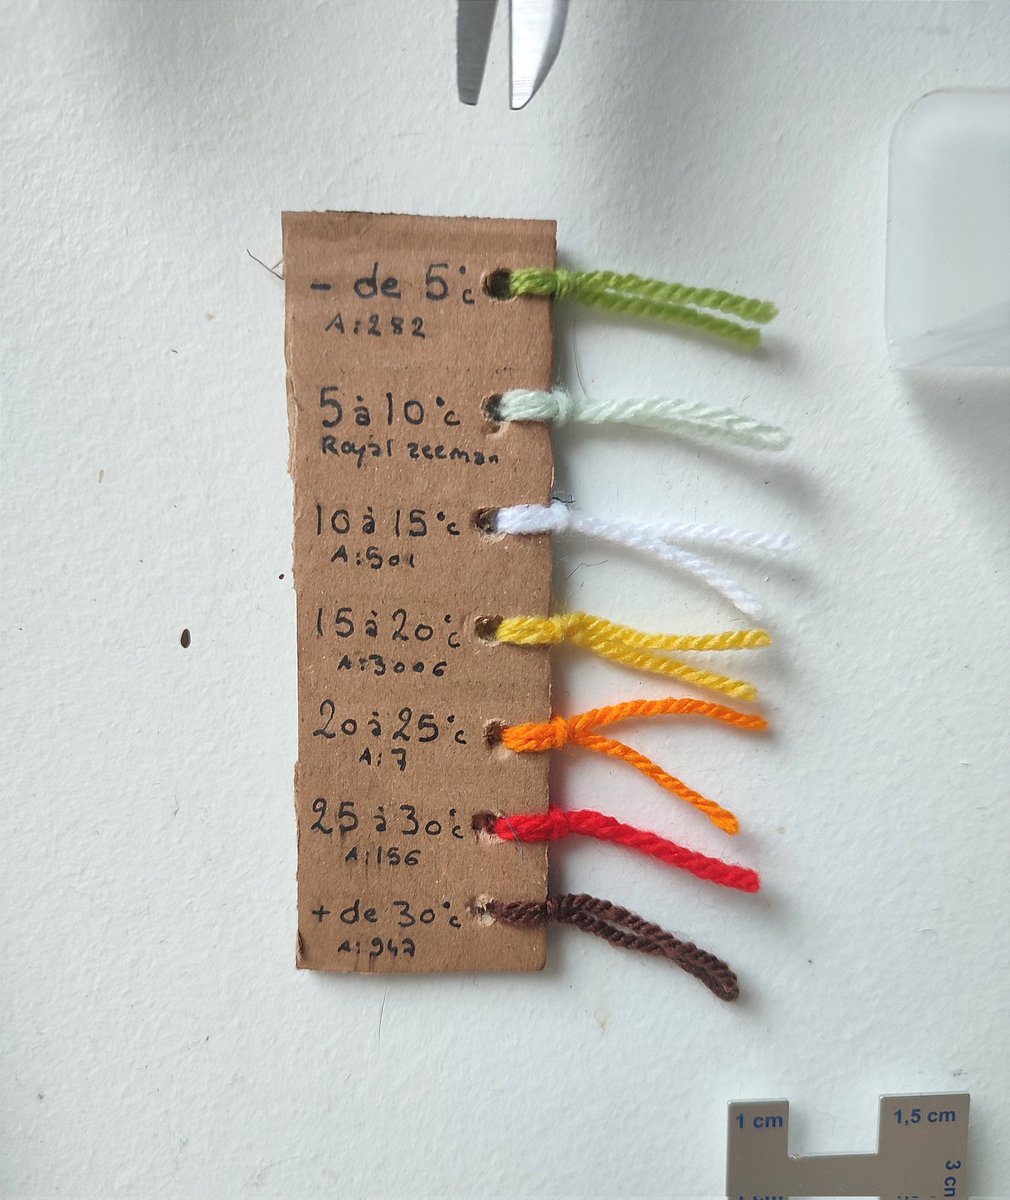 - de 5°c
A:282
5 à 10°c
Royal zeeman
10 à 15°c
A:501
15 à 20°c
A:3006
20 à 25°c
A:7
25 à 30°c
A:156
+ de 30°c
A:947
1 cm
1,5 cm
3 cm